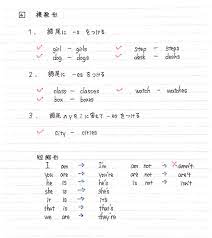 複数形
1. 語尾に -s をつける
✓ girl - girls ✓ step - steps
✓ dog - dogs ✓ desk - desks
2. 語尾に -es をつける
✓ class - classes ✓ watch - watches
✓ box - boxes
3. 語尾の y を i に変えて -es をつける
✓ city - cities
短縮形
I am → I'm am not → × amn't
you are → you're are not → aren't
he is → he's is not → isn't
she is → she's
it is → it's
that is → that's
we are → they're